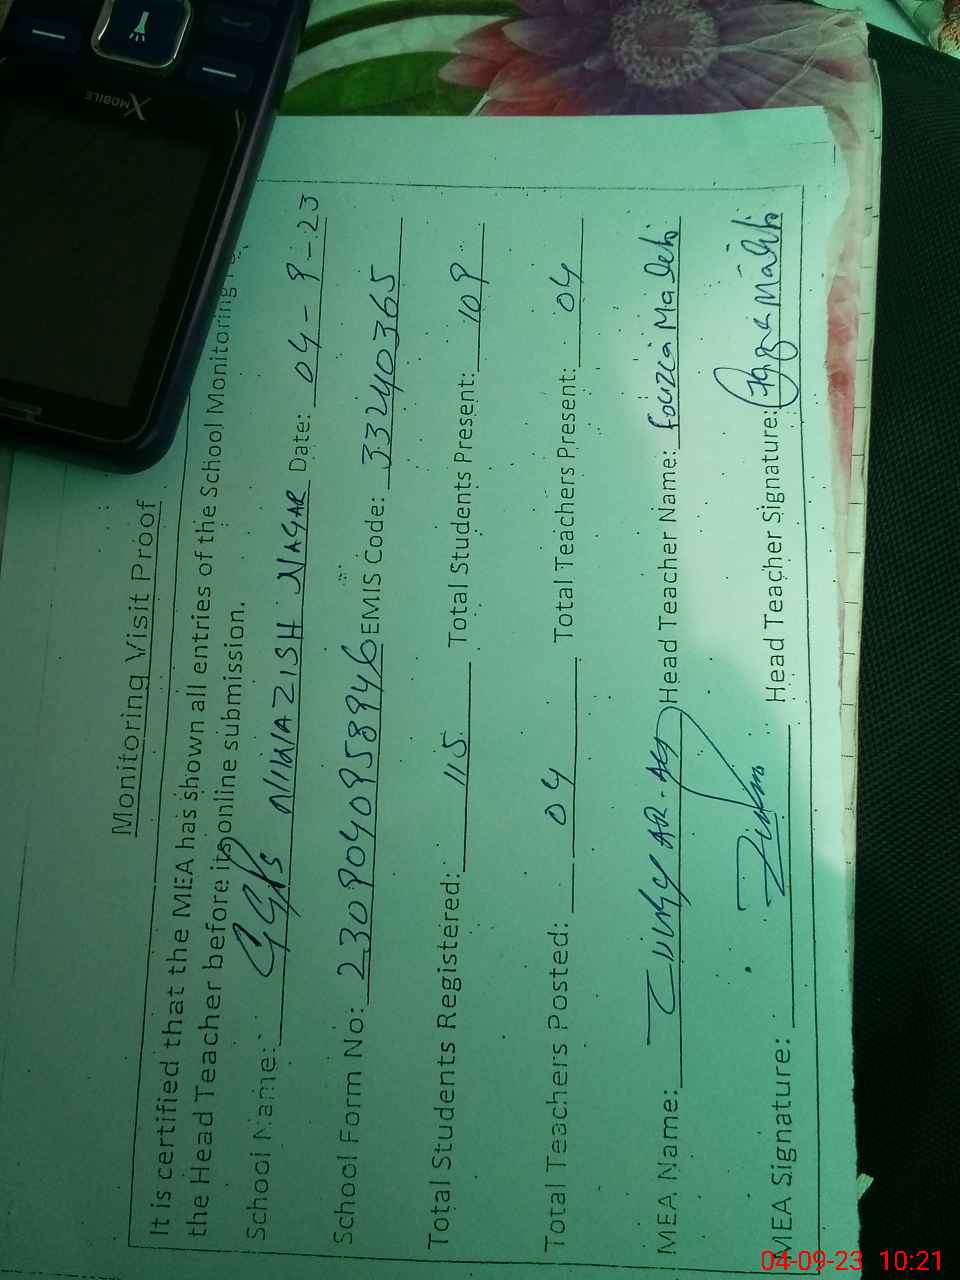 X MOBILE
Monitoring Visit Proof
It is certified that the MEA has shown all entries of the School Monitoring
the Head Teacher before its online submission.
School Name: GGPS NAWAZISH NAGAR Date: 04-9-23
School Form No: 2309040958946 EMIS Code: 33240365
Total Students Registered: 115 Total Students Present: 109
Total Teachers Posted: 04 Total Teachers Present: 04
MEA Name: Head Teacher Name: fouzea Ma
MEA Signature: Head Teacher Signature:
04-09-23 10:21